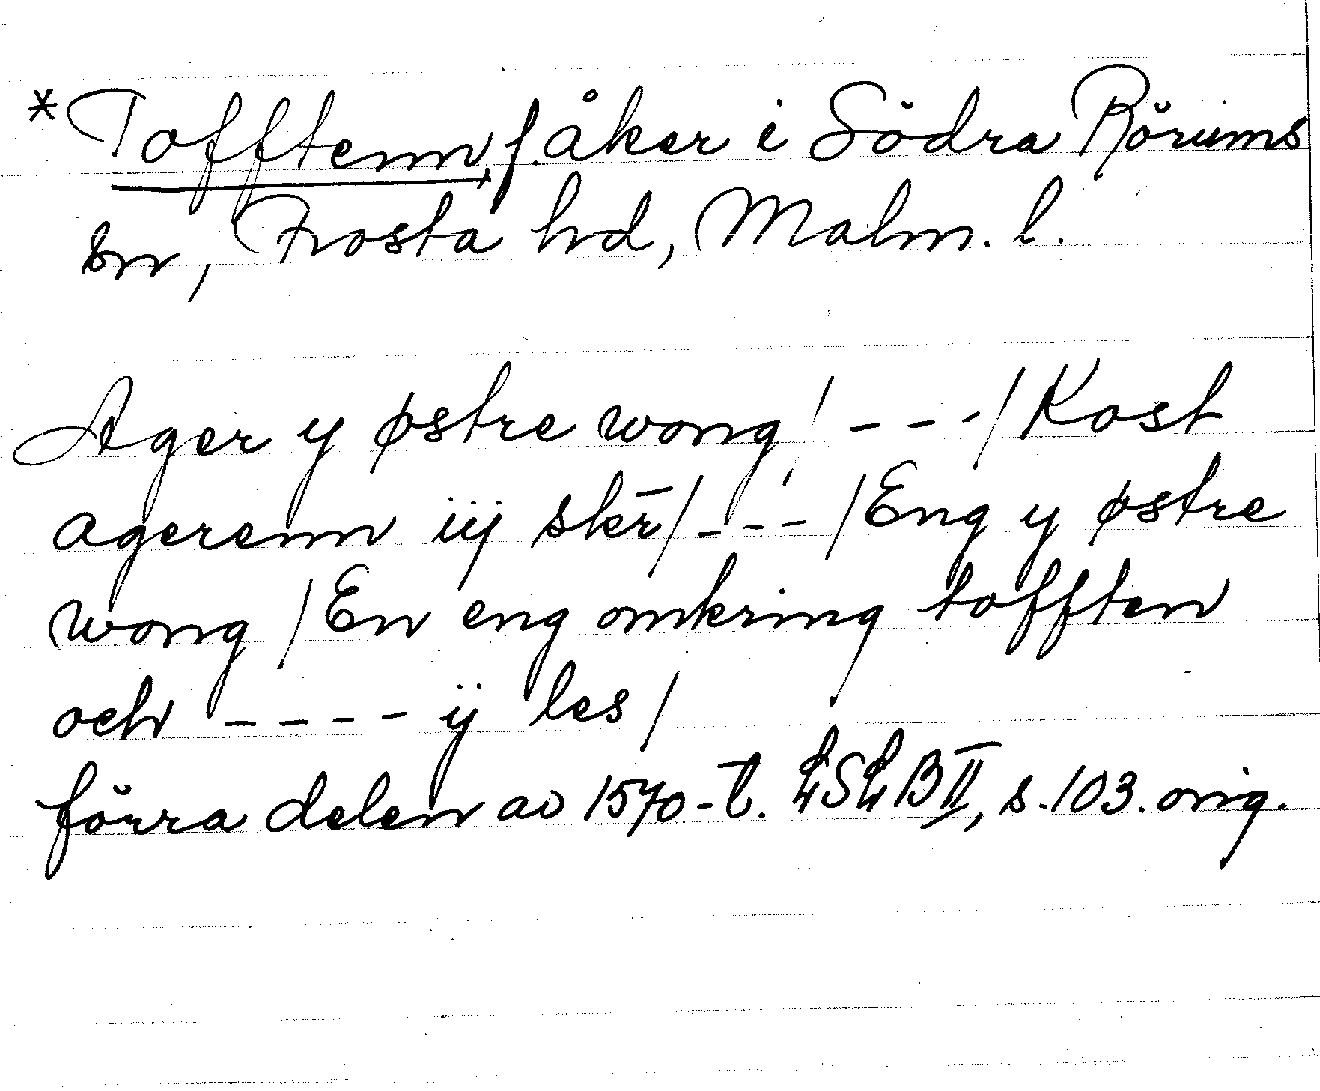 *Tofftenn, f. åker i Södra Rörums
sn, Frosta hd, Malm. l.
Ager y østre wong / - - - / Kost
agerenn iij skr̄ / - - - / Eng y østre
wong / En eng omkring tofften
och - - - - ij les /
förra delen av 1570-t. LSLB II, s. 103. orig.